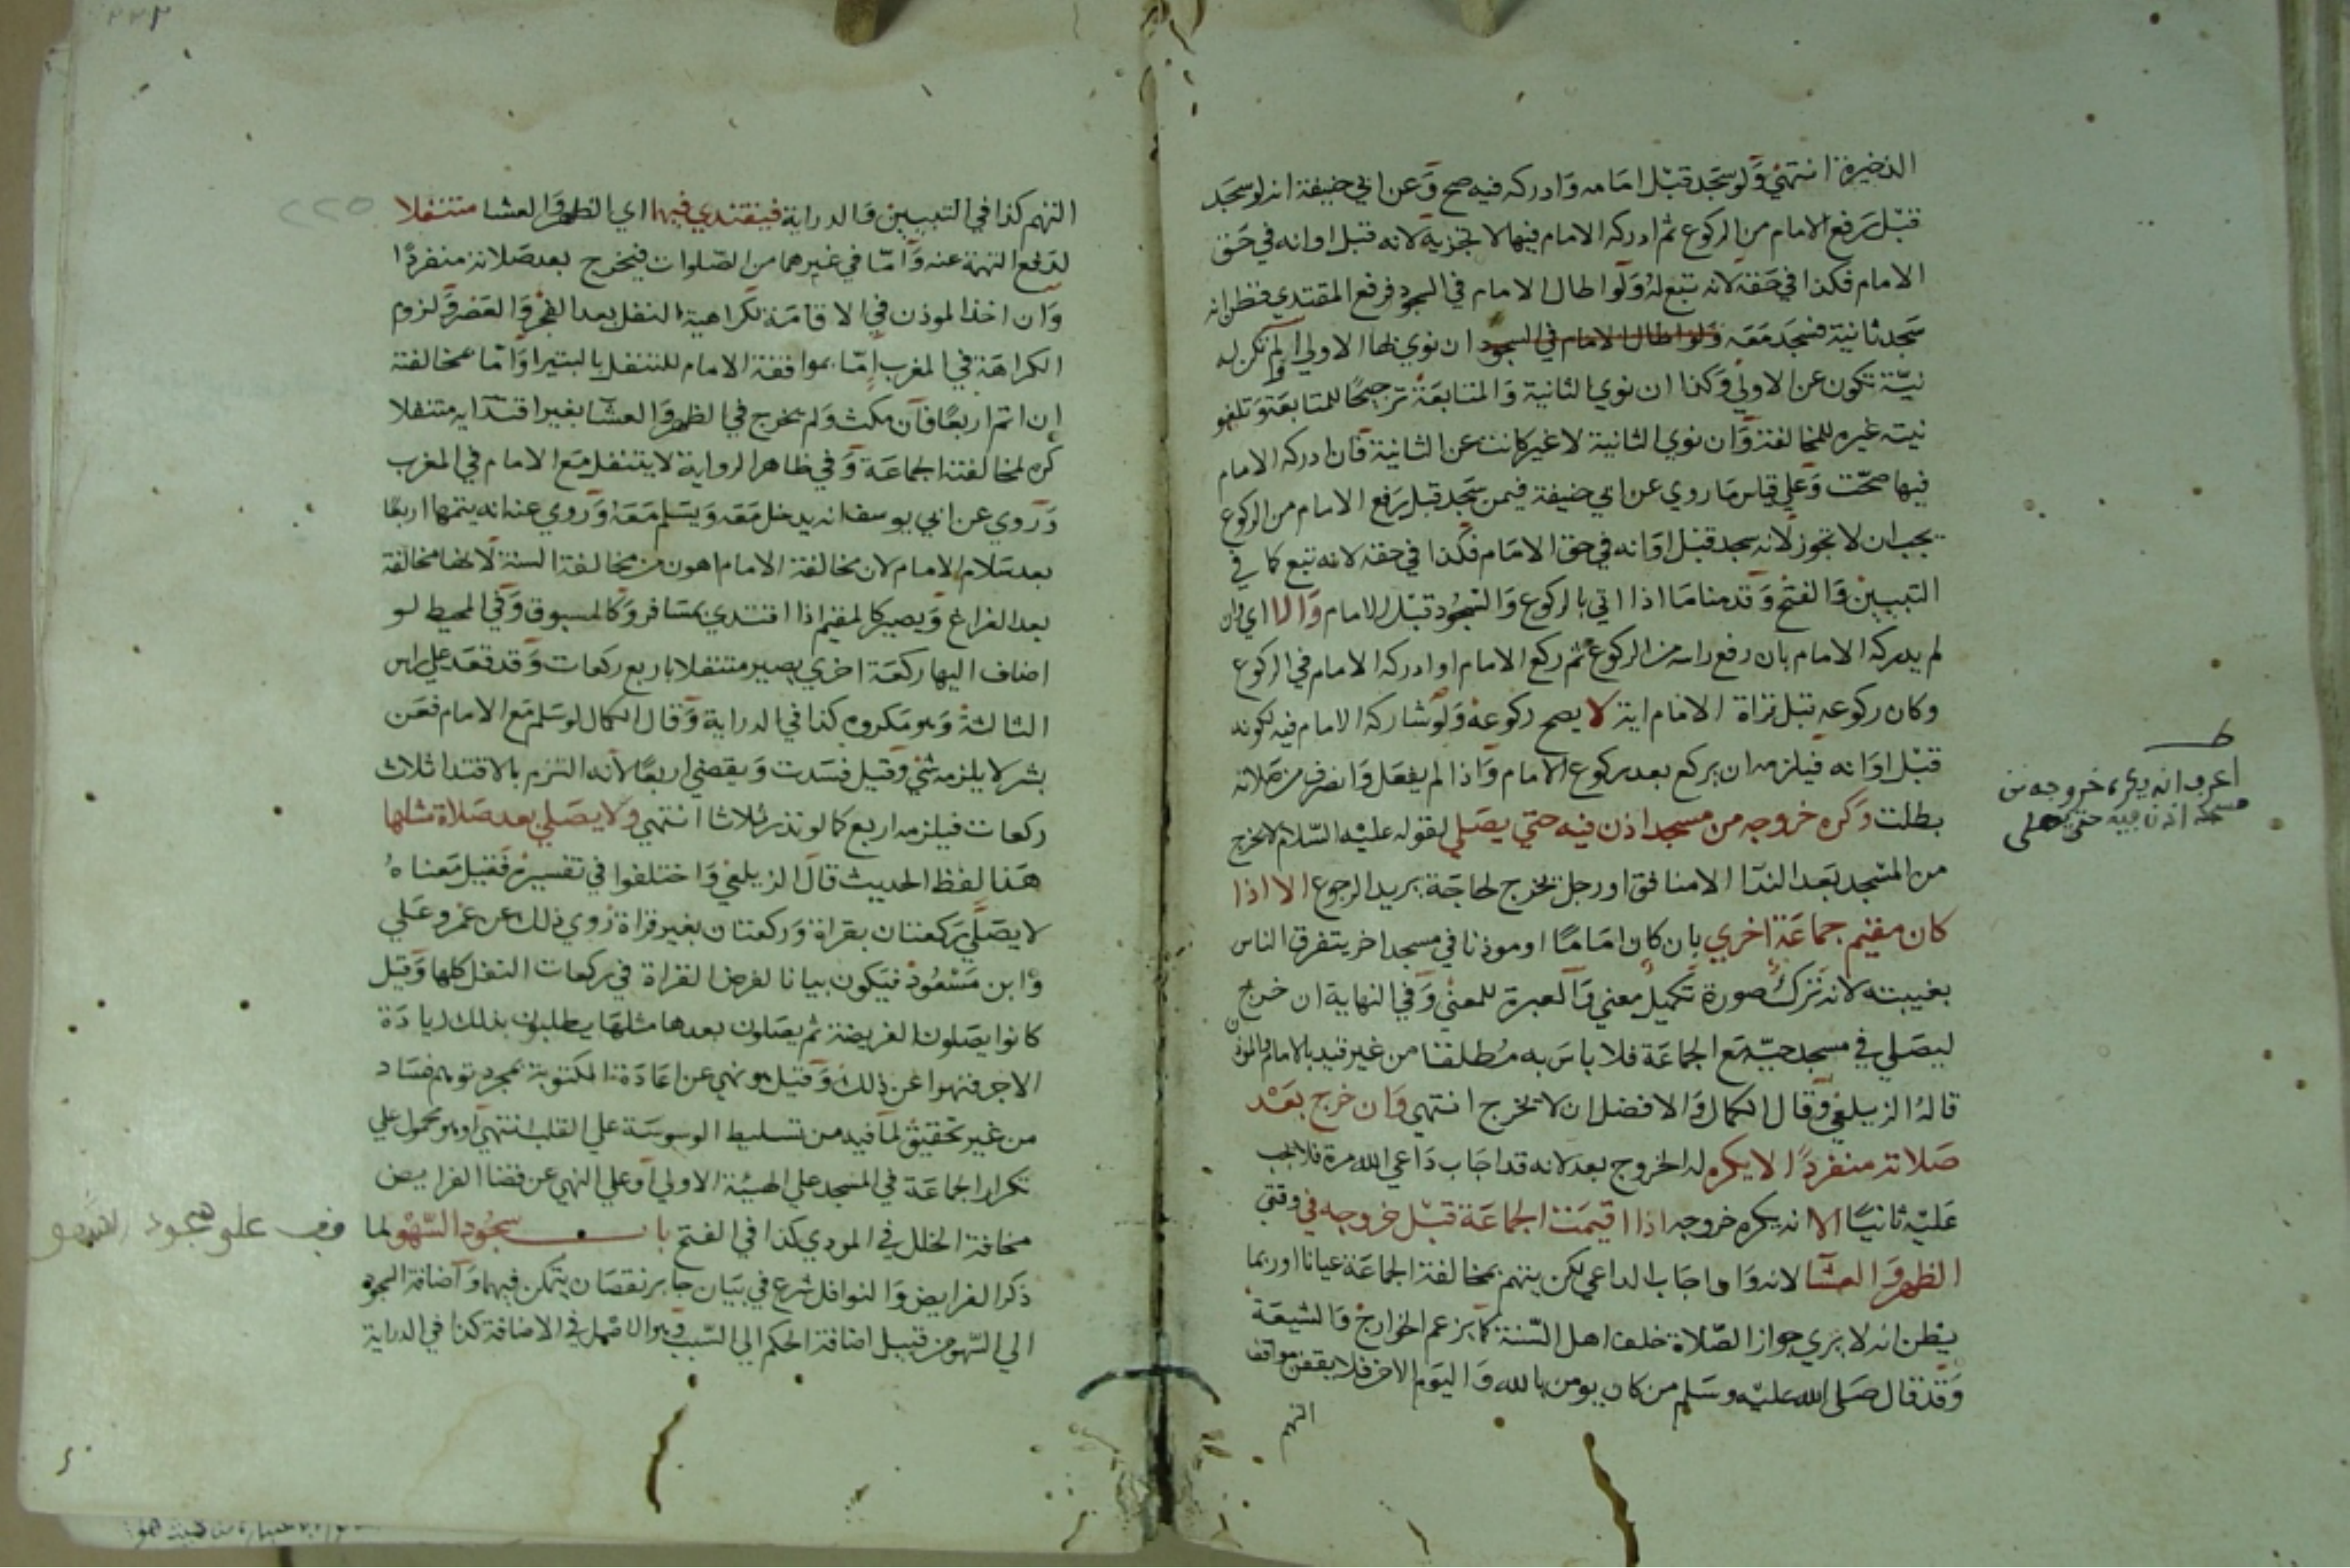 الذخيرة انتهي ولو سجد قبل امامه وادركه فيه صح وعن ابي حنيفة انه لو سجد
قبل رفع الامام من الركوع ثم ادركه الامام فيها لا تجزيه لانه قبل اوانه في حق
الامام فكذا في حقه لانه تبع له ولو اطال الامام في السجود فرفع المقتدي فظن انه
سجد ثانية فسجد معه ولو اطال الامام في السجود ان نوي بها الاولي او لم تكن له
نية تكون عن الاولي وكذا ان نوي الثانية والمتابعة ترجيحا للمتابعة وتلغو
نيته غيره للمخالفة وان نوي الثانية لا غير كانت عن الثانية فان ادركه الامام
فيها صحت وعلي قياس ما روي عن ابي حنيفة فيمن سجد قبل رفع الامام من الركوع
يجب ان لا تجوز لانه سجد قبل اوانه في حق الامام فكذا في حقه لانه تبع كما في
التبيين والفتح وقدمنا ما اذا اتي بالركوع والسجود قبل الامام والا اي وان
لم يدركه الامام بان رفع راسه من الركوع ثم ركع الامام او ادركه الامام في الركوع
وكان ركوعه قبل قراة الامام اية لا يصح ركوعه ولو شاركه الامام فيه لكونه
قبل اوانه فيلزمه ان يركع بعد ركوع الامام واذا لم يفعل وانصرف من صلاته
بطلت وكره خروجه من مسجد اذن فيه حتي يصلي لقوله عليه السلام لا يخرج
من المسجد بعد الندا الا منافق او رجل يخرج لحاجة يريد الرجوع الا اذا
كان مقيم جماعة اخري بان كان اماما او موذنا في مسجد اخر يتفرق الناس
بغيبته لانه ترك صورة تكميل معني والعبرة للمعني وفي النهاية ان خرج
ليصلي في مسجد حيه مع الجماعة فلا باس به مطلقا من غير قيد بالامام والموذن
قاله الزيلعي وقال الكمال والافضل ان لا يخرج انتهي وان خرج بعد
صلاته منفردا لا يكره له الخروج بعد لانه قد اجاب داعي الله مرة فلا يجب
عليه ثانيا الا انه يكره خروجه اذا اقيمت الجماعة قبل خروجه في وقتي
الظهر والعشا لانه وان اجاب الداعي لكن يتهم بمخالفة الجماعة عيانا او ربما
يظن انه لا يري جواز الصلاة خلف اهل السنة كما يزعم الخوارج والشيعة
وقد قال صلي الله عليه وسلم من كان يومن بالله واليوم الاخر فلا يقفن مواقف
التهم
اعرف انه يكره خروجه من
مسجد اذن فيه حتى يصلى
٢٢٥
التهم كذا في التبيين والدراية فيقتدي فيهما اي الظهر والعشا متنفلا
لدفع التهمة عنه واما في غيرهما من الصلوات فيخرج بعد صلاته منفردا
وان اخذ الموذن في الاقامة لكراهية النفل بعد الفجر والعصر ولزوم
الكراهة في المغرب اما بموافقة الامام للتنفل بالبتيرا واما بمخالفته
ان اتم اربعا فان مكث ولم يخرج في الظهر والعشا بغير اقتدايه متنفلا
كره لمخالفته الجماعة وفي ظاهر الرواية لا يتنفل مع الامام في المغرب
وروي عن ابي يوسف انه يدخل معه ويسلم معه وروي عنه انه يتمها اربعا
بعد سلام الامام لان مخالفة الامام اهون من مخالفة السنة لانها مخالفة
بعد الفراغ ويصير كالمقيم اذا اقتدي بمسافر وكالمسبوق وفي المحيط لو
اضاف اليها ركعة اخري يصير متنفلا باربع ركعات وقد قعد علي راس
الثالثة وهو مكروه كذا في الدراية وقال الكمال لو سلم مع الامام فعن
بشر لا يلزمه شي وقيل فسدت ويقضي اربعا لانه التزم بالاقتدا ثلاث
ركعات فيلزمه اربع كما لو نذر ثلاثا انتهي ولا يصلي بعد صلاة مثلها
هذا لفظ الحديث قال الزيلعي واختلفوا في تفسيره فقيل معناه
لا يصلي ركعتان بقراة وركعتان بغير قراة روي ذلك عن عمر وعلي
وابن مسعود فيكون بيانا لفرض القراة في ركعات النفل كلها وقيل
كانوا يصلون الفريضة ثم يصلون بعدها مثلها يطلبون بذلك زيادة
الاجر فنهوا عن ذلك وقيل هو نهي عن اعادة المكتوبة بمجرد توهم فساد
من غير تحقيق لما فيه من تسليط الوسوسة علي القلب انتهي او هو محمول علي
تكرار الجماعة في المسجد علي الهيئة الاولي او علي النهي عن قضا الفرايض
مخافة الخلل في المودي كذا في الفتح باب سجود السهو لما
ذكر الفرايض والنوافل شرع في بيان جابر نقصان يتمكن فيهما واضافة السجود
الي السهو من قبيل اضافة الحكم الي السبب وهو الاصل في الاضافة كذا في الدراية
وقف على سجود السهو